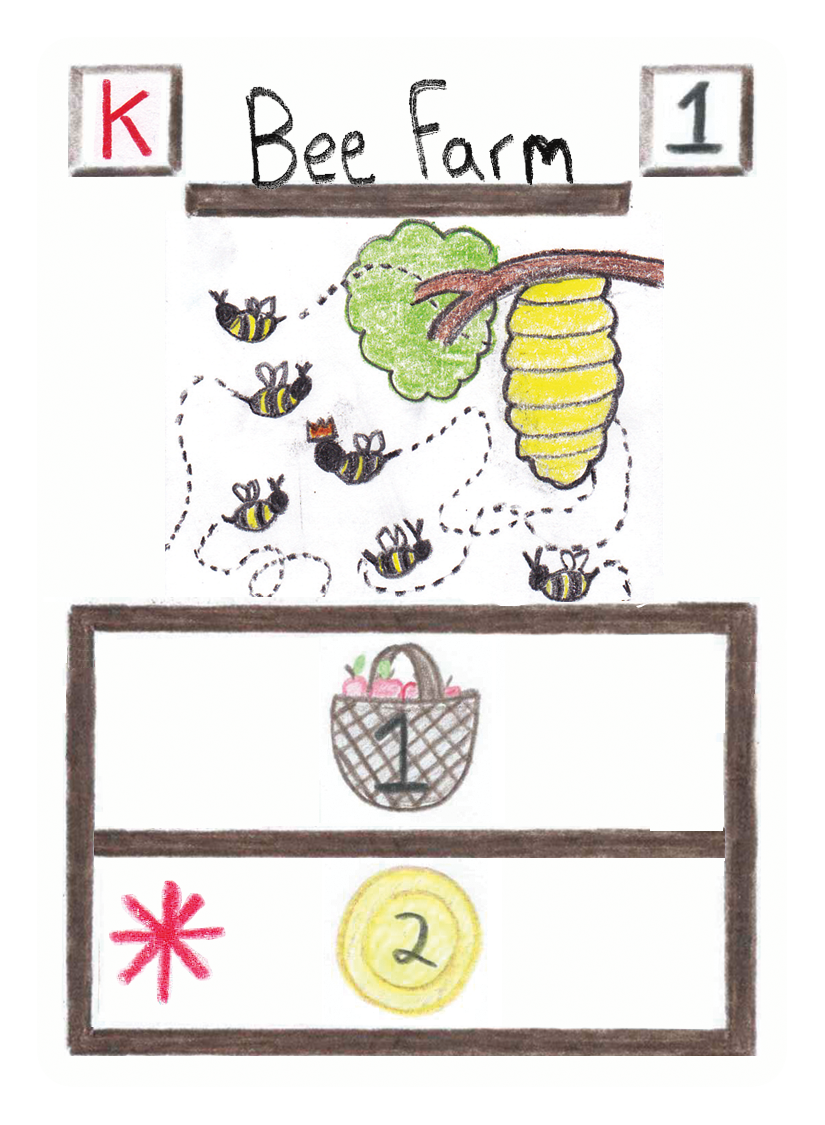 K
Bee Farm
1
1
2